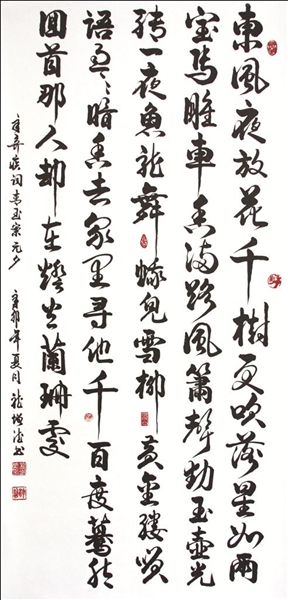 東風夜放花千樹更吹落星如雨
宝馬雕車香满路風簫聲動玉壺光
轉一夜魚龍舞蛾兒雪柳黄金縷笑
語盈々暗香去眾里寻他千百度驀然
回首那人却在燈火蘭珊處
辛弃疾词青玉案元夕 辛卯年夏月龍书